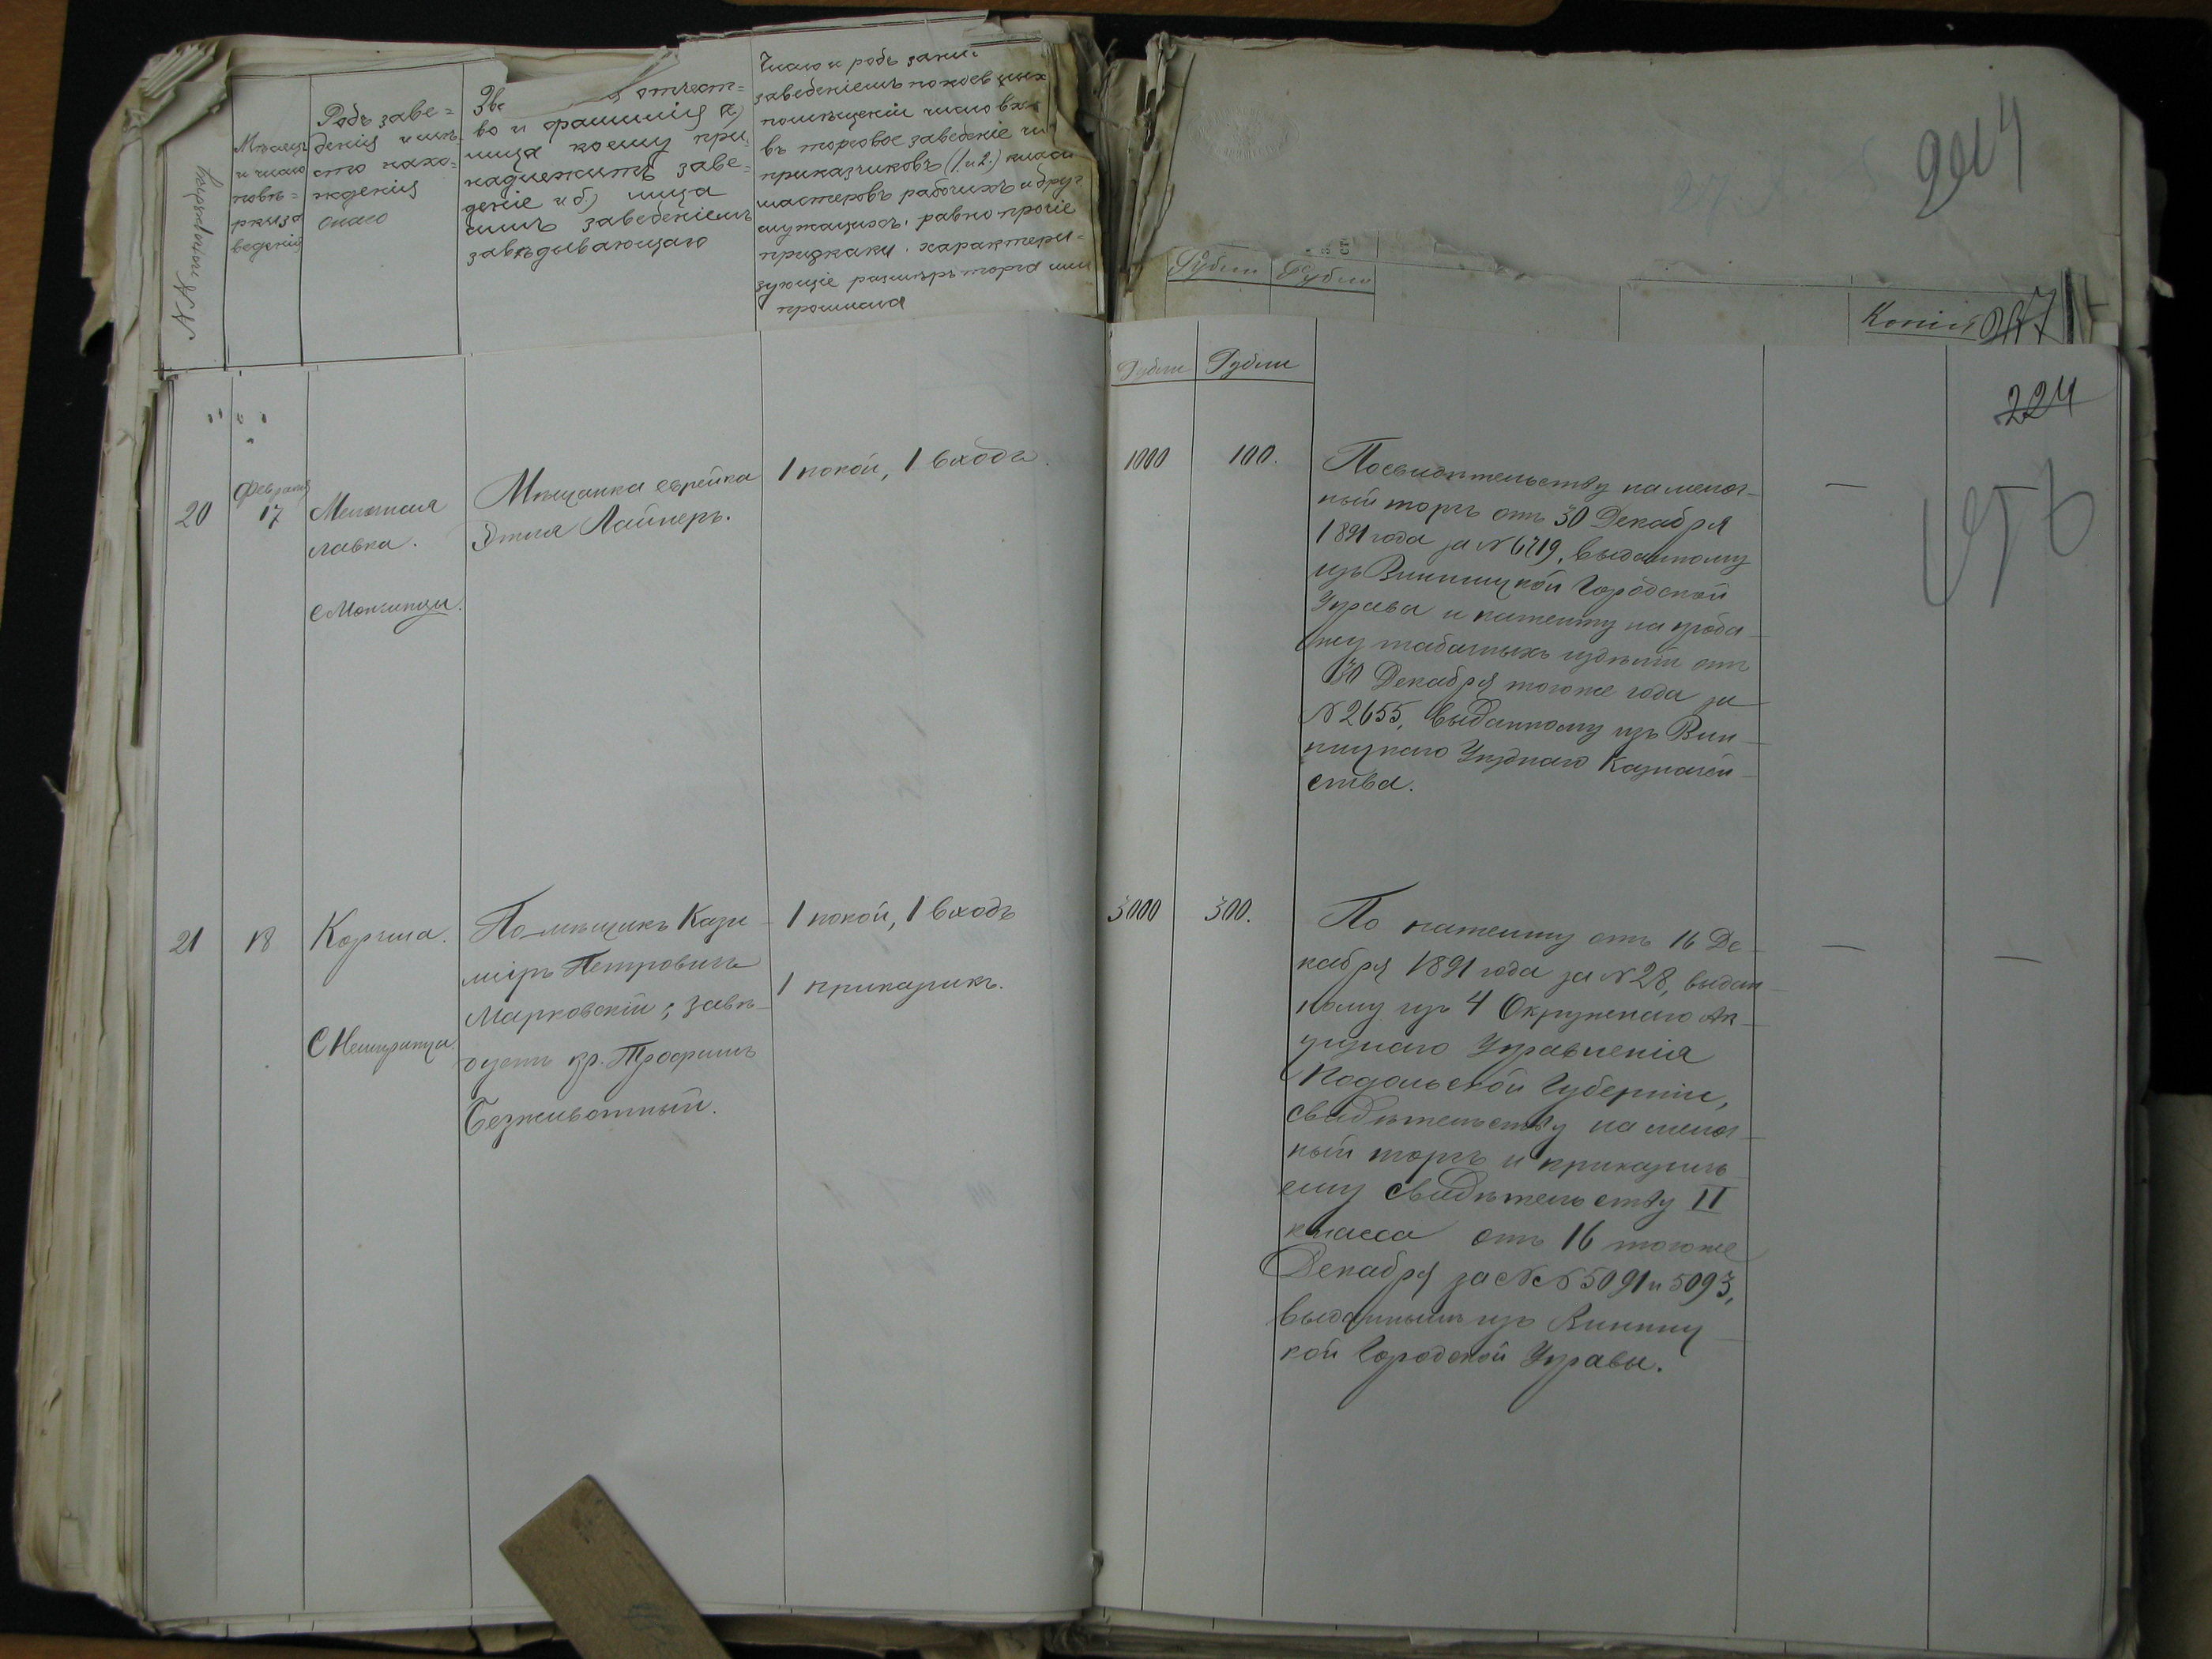 №№ попорядку
Мѣсяцъ
и число
повѣ=
рки за
веденія
Родъ заве=
денія и мѣ
сто нахо=
жденія
онаго
Зва отчест=
во и фамилія а)
лица коему при
надлежитъ заве=
деніе и б) лица
симъ заведеніемъ
завѣдывающаго
Число и родъ зани
заведеніемъ покоевъ иныхъ
помѣщеній число вхо
въ торговое заведеніе чи
приказчиковъ (1 и 2.) класс
мастеровъ рабочихъ и друг
служащихъ, равно прочіе
признаки, характери=
зующіе размѣръ торга или
промысла
904
Рубли Рубли
Копія 247
Рубли Рубли
224
20
Февраля
17
Мелочная
лавка.
С Мончинцы.
Мѣщанка еврейка
Этля Лайнеръ.
1 покой, 1 входъ.
1000 100.
По свидѣтельству на мелоч-
ный торгъ отъ 30 Декабря
1891 года за № 6719, выданному
изъ Винницкой Городской
Управы и патенту на прода-
жу табачныхъ издѣлій отъ
30 Декабря тогоже года за
№ 2655, выданному изъ Вин-
ницкаго Уѣзднаго Казначей-
ства.
—
21
18
Корчма.
С
Помѣщикъ Кази-
міръ Петровичъ
Марковскій; завѣ-
дуетъ кр. Трофимъ
Безживотный.
1 покой, 1 входъ
1 приказчикъ.
3000 300.
По патенту отъ 16 Де-
кабря 1891 года за № 28, выдан-
ному изъ 4 Окружнаго Ак-
цизнаго Управленія
Подольской Губерніи,
свидѣтельству на мелоч-
ный торгъ и приказчичь
ему свидѣтельству II
класса отъ 16 тогоже
Декабря за №№ 5091 и 5093,
выданнымъ изъ Винниц-
кой Городской Управы.
—
—